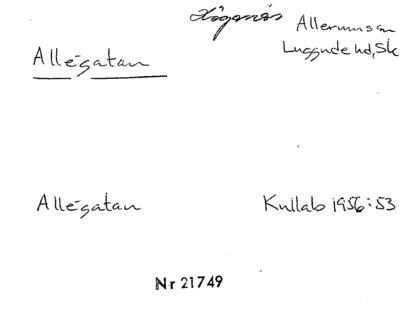 Höganäs
Allerums sn
Allégatan
Luggude hd, Sk
Allégatan
Kullab 1956:53
Nr 21749